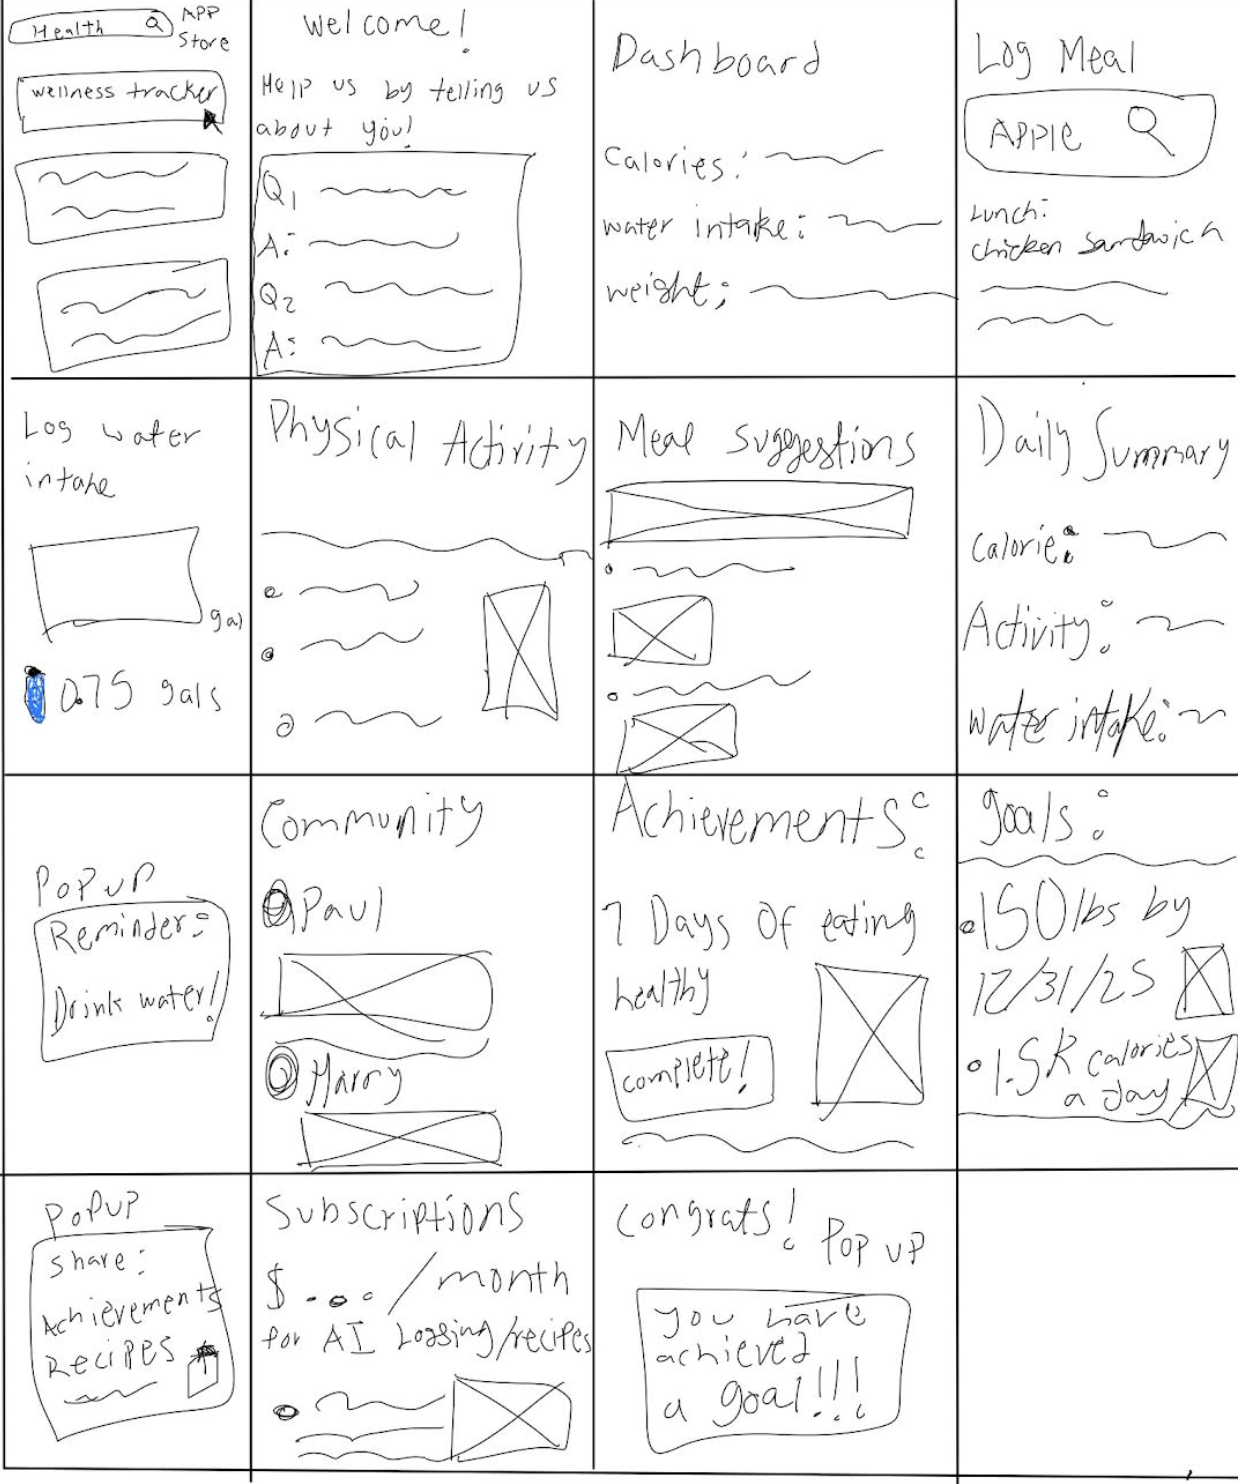 Health
APP
Store
wellness tracker
Welcome!
Help us by telling us
about you!
Q1
A:
Q2
A:
Dashboard
Calories:
water intake:
weight:
Log Meal
APPle
Lunch:
chicken sandwich
Log water
intake
gal
0.75 gals
Physical Activity
Meal suggestions
Daily Summary
Calorie:
Activity:
water intake:
PoPuP
Reminder:
Drink water!
Community
Paul
Harry
Achievements:
7 Days Of eating
healthy
complete!
goals:
150lbs by
12/31/25
1.5K calories
a day
PoPuP
share:
Achievements
Recipes
Subscriptions
$ ... /month
for AI Logging/recipes
Congrats!
Pop up
you have
achieved
a goal!!!